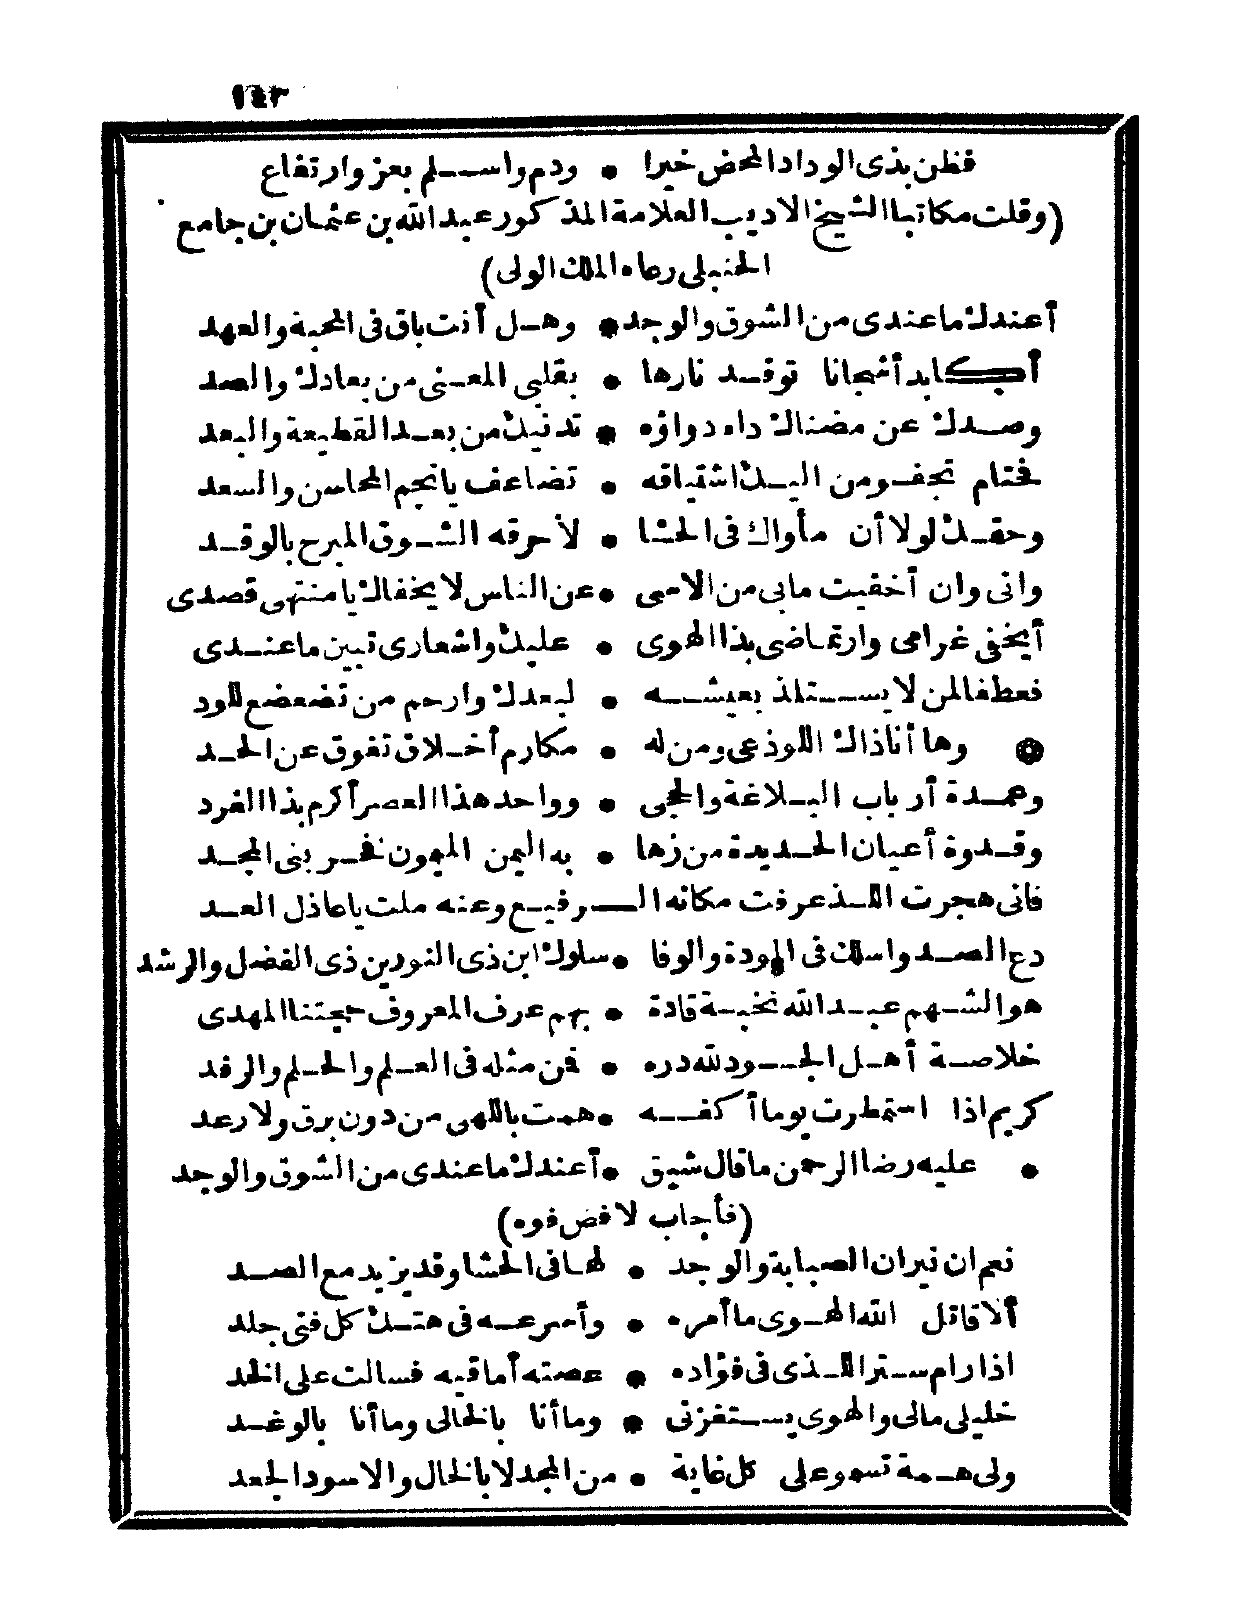 ١٤٣
فظن بذى الوداد المحض خيرا * ودم واسلم بعز وارتفاع
(وقلت مكاتبا الشيخ الاديب العلامة المذكور عبد الله بن عثمان بن جامع
الحنبلى رعاه الملك الولى)
أعندك ما عندى من الشوق والوجد * وهل أنت باق فى المحبة والعهد
أكابد أشجانا توقد نارها * بقلبى المعنى من بعادك والصد
وصدك عن مضناك داء دواؤه * تدنيك من بعد القطيعة والبعد
فحتام تجفو من اليك اشتياقه * تضاعف يا نجم المحاسن والسعد
وحقك لولا أن مأواك فى الحشا * لأحرقه الشوق المبرح بالوقد
وانى وان أخفيت ما بى من الاسى * عن الناس لا يخفاك يا منتهى قصدى
أيخفى غرامى وارتماضى بذا الهوى * عليك واشعارى تبين ما عندى
فعطفا لمن لا يستلذ بعيشه * لبعدك وارحم من تضعضع للود
وها أنا ذاك اللوذعى ومن له * مكارم أخلاق تفوق عن الحد
وعمدة أرباب البلاغة والحجى * وواحد هذا العصر أكرم بذا الفرد
وقدوة أعيان الحديدة من زها * به اليمن الميمون فخر بنى المجد
فانى هجرت اللذ عرفت مكانه الرفيع وعنه ملت يا عاذل العد
دع الصد واسلك فى المودة والوفا * سلوك ابن ذى النورين ذى الفضل والرشد
هو الشهم عبد الله نخبة قادة * بهم عرف المعروف حجتنا المهدى
خلاصة أهل الجود لله دره * فمن مثله فى العلم والحلم والرفد
كريم اذا استمطرت يوما أكفه * همت باللهى من دون برق ولا رعد
* عليه رضا الرحمن ما قال شيق * أعندك ما عندى من الشوق والوجد
(فأجاب لا فض فوه)
نعم ان نيران الصبابة والوجد * لها فى الحشا وقد يزيد مع الصد
ألا قاتل الله الهوى ما أمره * وأسرعه فى هتك كل فتى جلد
اذا رام ستر اللذى فى فؤاده * عصته أماقيه فسالت على الخد
خليلى مالى والهوى يستفزنى * وما أنا بالخالى وما أنا بالوغد
ولى همة تسمو على كل غاية * من المجد لا بالخال والاسود الجعد